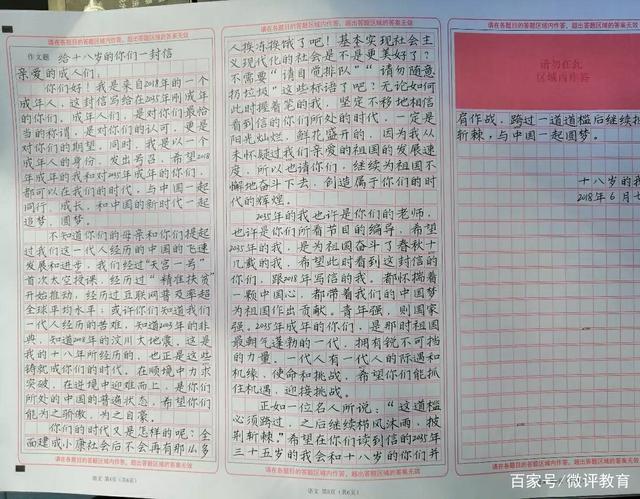 请在各题目的答题区域内作答，超出答题区域的答案无效
作文题 给十八岁的你们一封信
亲爱的成人们：
你们好！我是来自2018年的一个
成年人，这封信写给在2035年刚成年
的你们。成年人们，是对你们最恰
当的称谓，是对你们的认可，更是
对你们的期望。同时，我是以一个
成年人的身份，发出号召，希望2018
年成年的我和对2035年成年的你们，
都可以在我们的时代，与中国一起
同行，成长，和中国的新时代一起
追梦，圆梦。
不知道你们的母亲和你们提起
过我们这一代人经历的中国的飞速
发展和进步，我们经过“天宫一号”
首次太空授课，经历过“精准扶贫”
开始推动，经历过互联网普及率超
全球平均水平；或许你们知道我们
一代人经历的苦难，知道2003年的非
典，知道2008年的汶川大地震。这是
我的十八年所经历的，也正是这些
铸就成你们的时代，在顺境中力求
突破，在逆境中迎难而上，是你们
所处的中国的普遍状态，希望你们
能为之骄傲，为之自豪。
你们的时代又是怎样的呢？全
面建成小康社会后不会再有那么多
请在各题目的答题区域内作答，超出答题区域的答案无效
语文 第4页（共6页）
请在各题目的答题区域内作答，超出答题区域的答案无效
人挨冻挨饿了吧！基本实现社会主
义现代化的社会是不是更美好了？
不需要“请自觉排队”“请勿随意
扔垃圾”这些标语了吧？无论如何
此时握着笔的我，坚定不移地相信
看到信的你们所处的时代，一定是
阳光灿烂，鲜花盛开的，因为我从
未怀疑过我们亲爱的祖国的发展速
度，所以也请你们，继续为祖国不
懈地奋斗下去，创造属于你们的时
代的辉煌。
2035年的我也许是你们的老师，
也许是你们所看节目的编导，希望
2035年的我，是为祖国奋斗了春秋十
几载的我，希望此时看到这封信的
你们，跟2018年写信的我。都怀揣着
一颗中国心，都带着我们的中国梦
为祖国作出贡献。青年强，则国家
强。2035年成年的你们，是那时祖国
最朝气蓬勃的一代，拥有锐不可挡
的力量。一代人有一代人的际遇和
机缘，使命和挑战，希望你们能抓
住机遇，迎接挑战。
正如一位名人所说：“这道槛
必须跨过，之后继续栉风沐雨，披
荆斩棘。”希望在你们读到信的2035年
三十五岁的我会和十八岁的你们并
请在各题目的答题区域内作答，超出答题区域的答案无效
语文 第5页（共6页）
请在各题目的答题区域内作答，超出答题区域的答案无效
请勿在此
区域内作答
肩作战，跨过一道道槛后继续披
斩棘，与中国一起圆梦。
十八岁的我
2018年6月七
请在各题目的答题区域内作答，超出答题区域的
百家号/微评教育